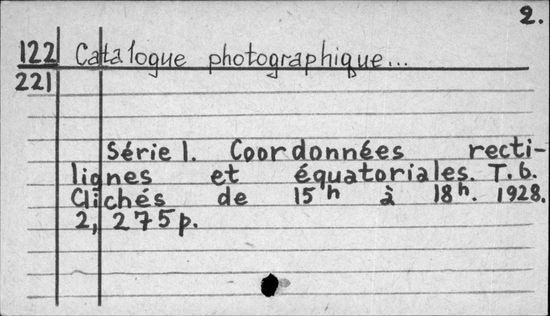 2.
122 Catalogue photographique...
221
Série 1. Coordonnées recti-
lignes et équatoriales. T. 6.
Clichés de 15ʰ à 18ʰ. 1928.
2, 275p.